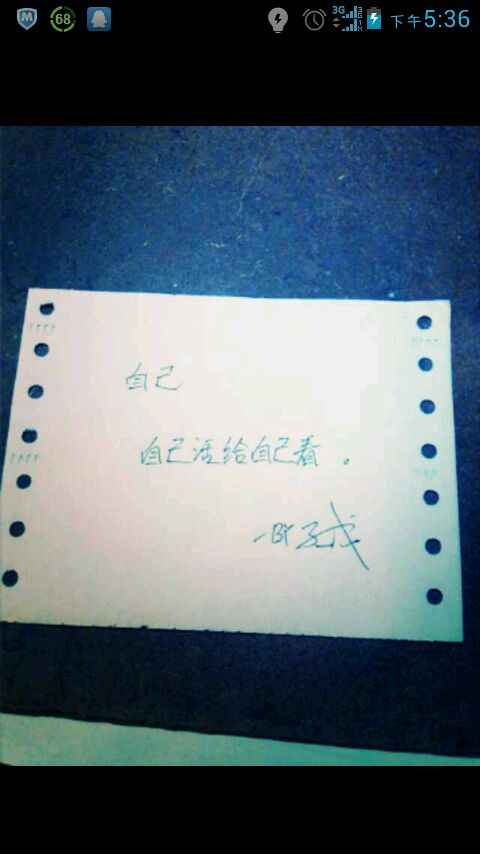 68 3G 下午5:36
自己
自己活给自己看。
—BY